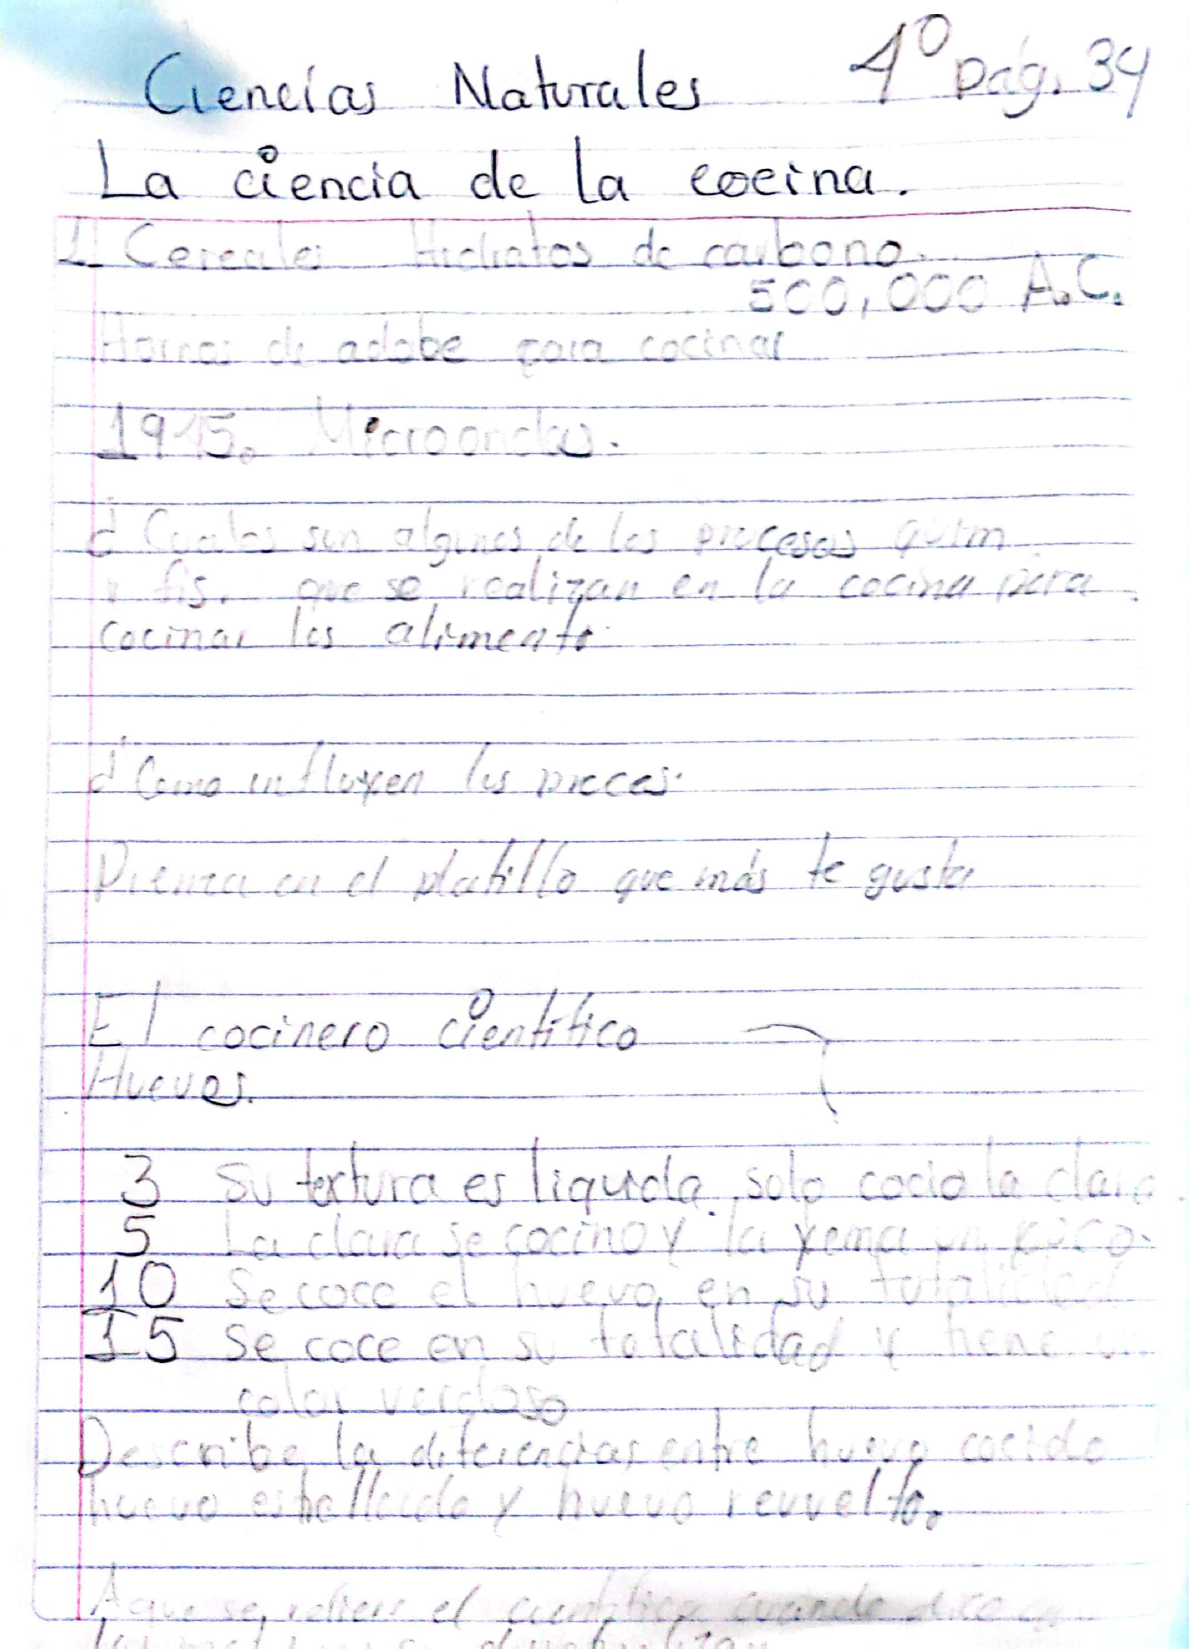 Ciencias Naturales 4° pág. 34
La ciencia de la cocina.
1. Cereales Hidratos de carbono.
500,000 A.C.
Hornos de adobe para cocinar
1945. Microondas.
¿Cuales son algunos de los procesos quim
y fis. que se realizan en la cocina para
cocinar los alimento
¿Como influyen los proces.
Piensa en el platillo que más te gusta
El cocinero científico
Huevos.
3 Su textura es liquida, solo cocio la clara
5 La clara se cocino y la yema un poco.
10 Se coce el huevo en su totalidad
15 Se coce en su totalidad y tiene un
color verdoso
Describe la diferencias entre huevo cocido
huevo estrellado y huevo revuelto.
A que se refiere el científico cuando dice